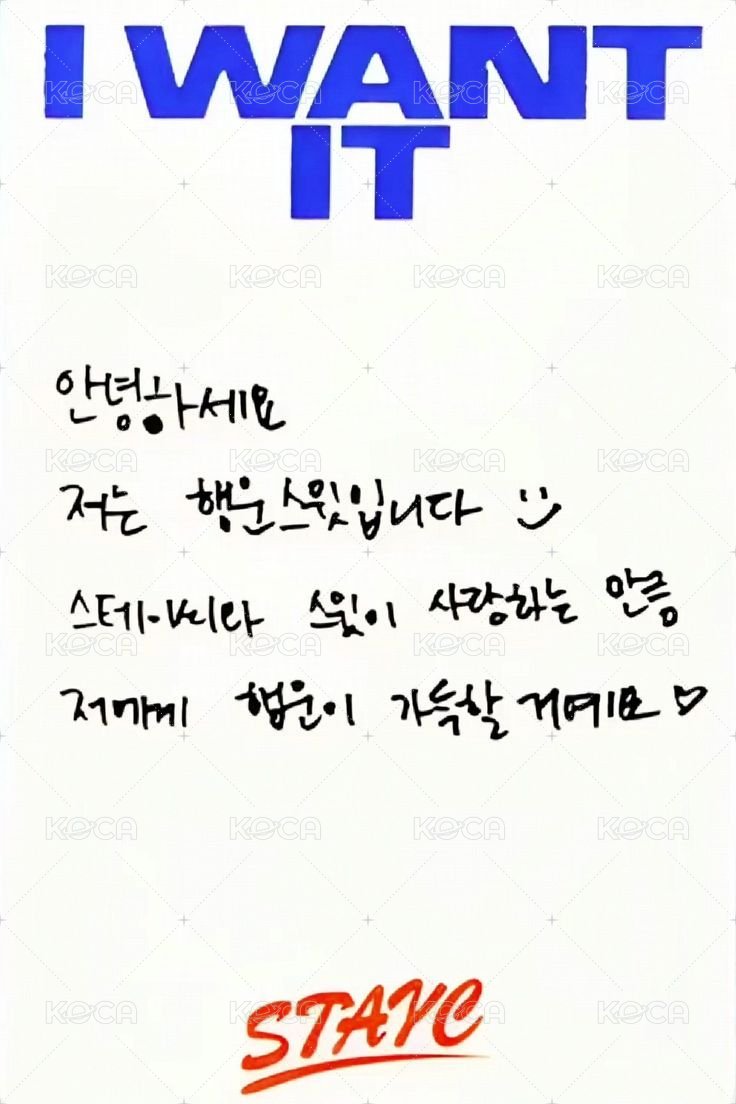 I WANT
IT
안녕하세요
저는 행운스윗입니다 :)
스테이씨랑 스윗이 사랑하는 만큼
저에게 행운이 가득할 거예요♡
STAYC
KOCA